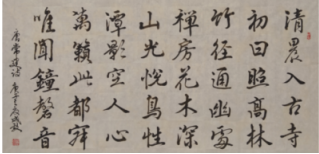 清晨入古寺
初日照高林
竹徑通幽處
禪房花木深
山光悅鳥性
潭影空人心
萬籟此都寂
唯聞鐘磬音
唐常建詩